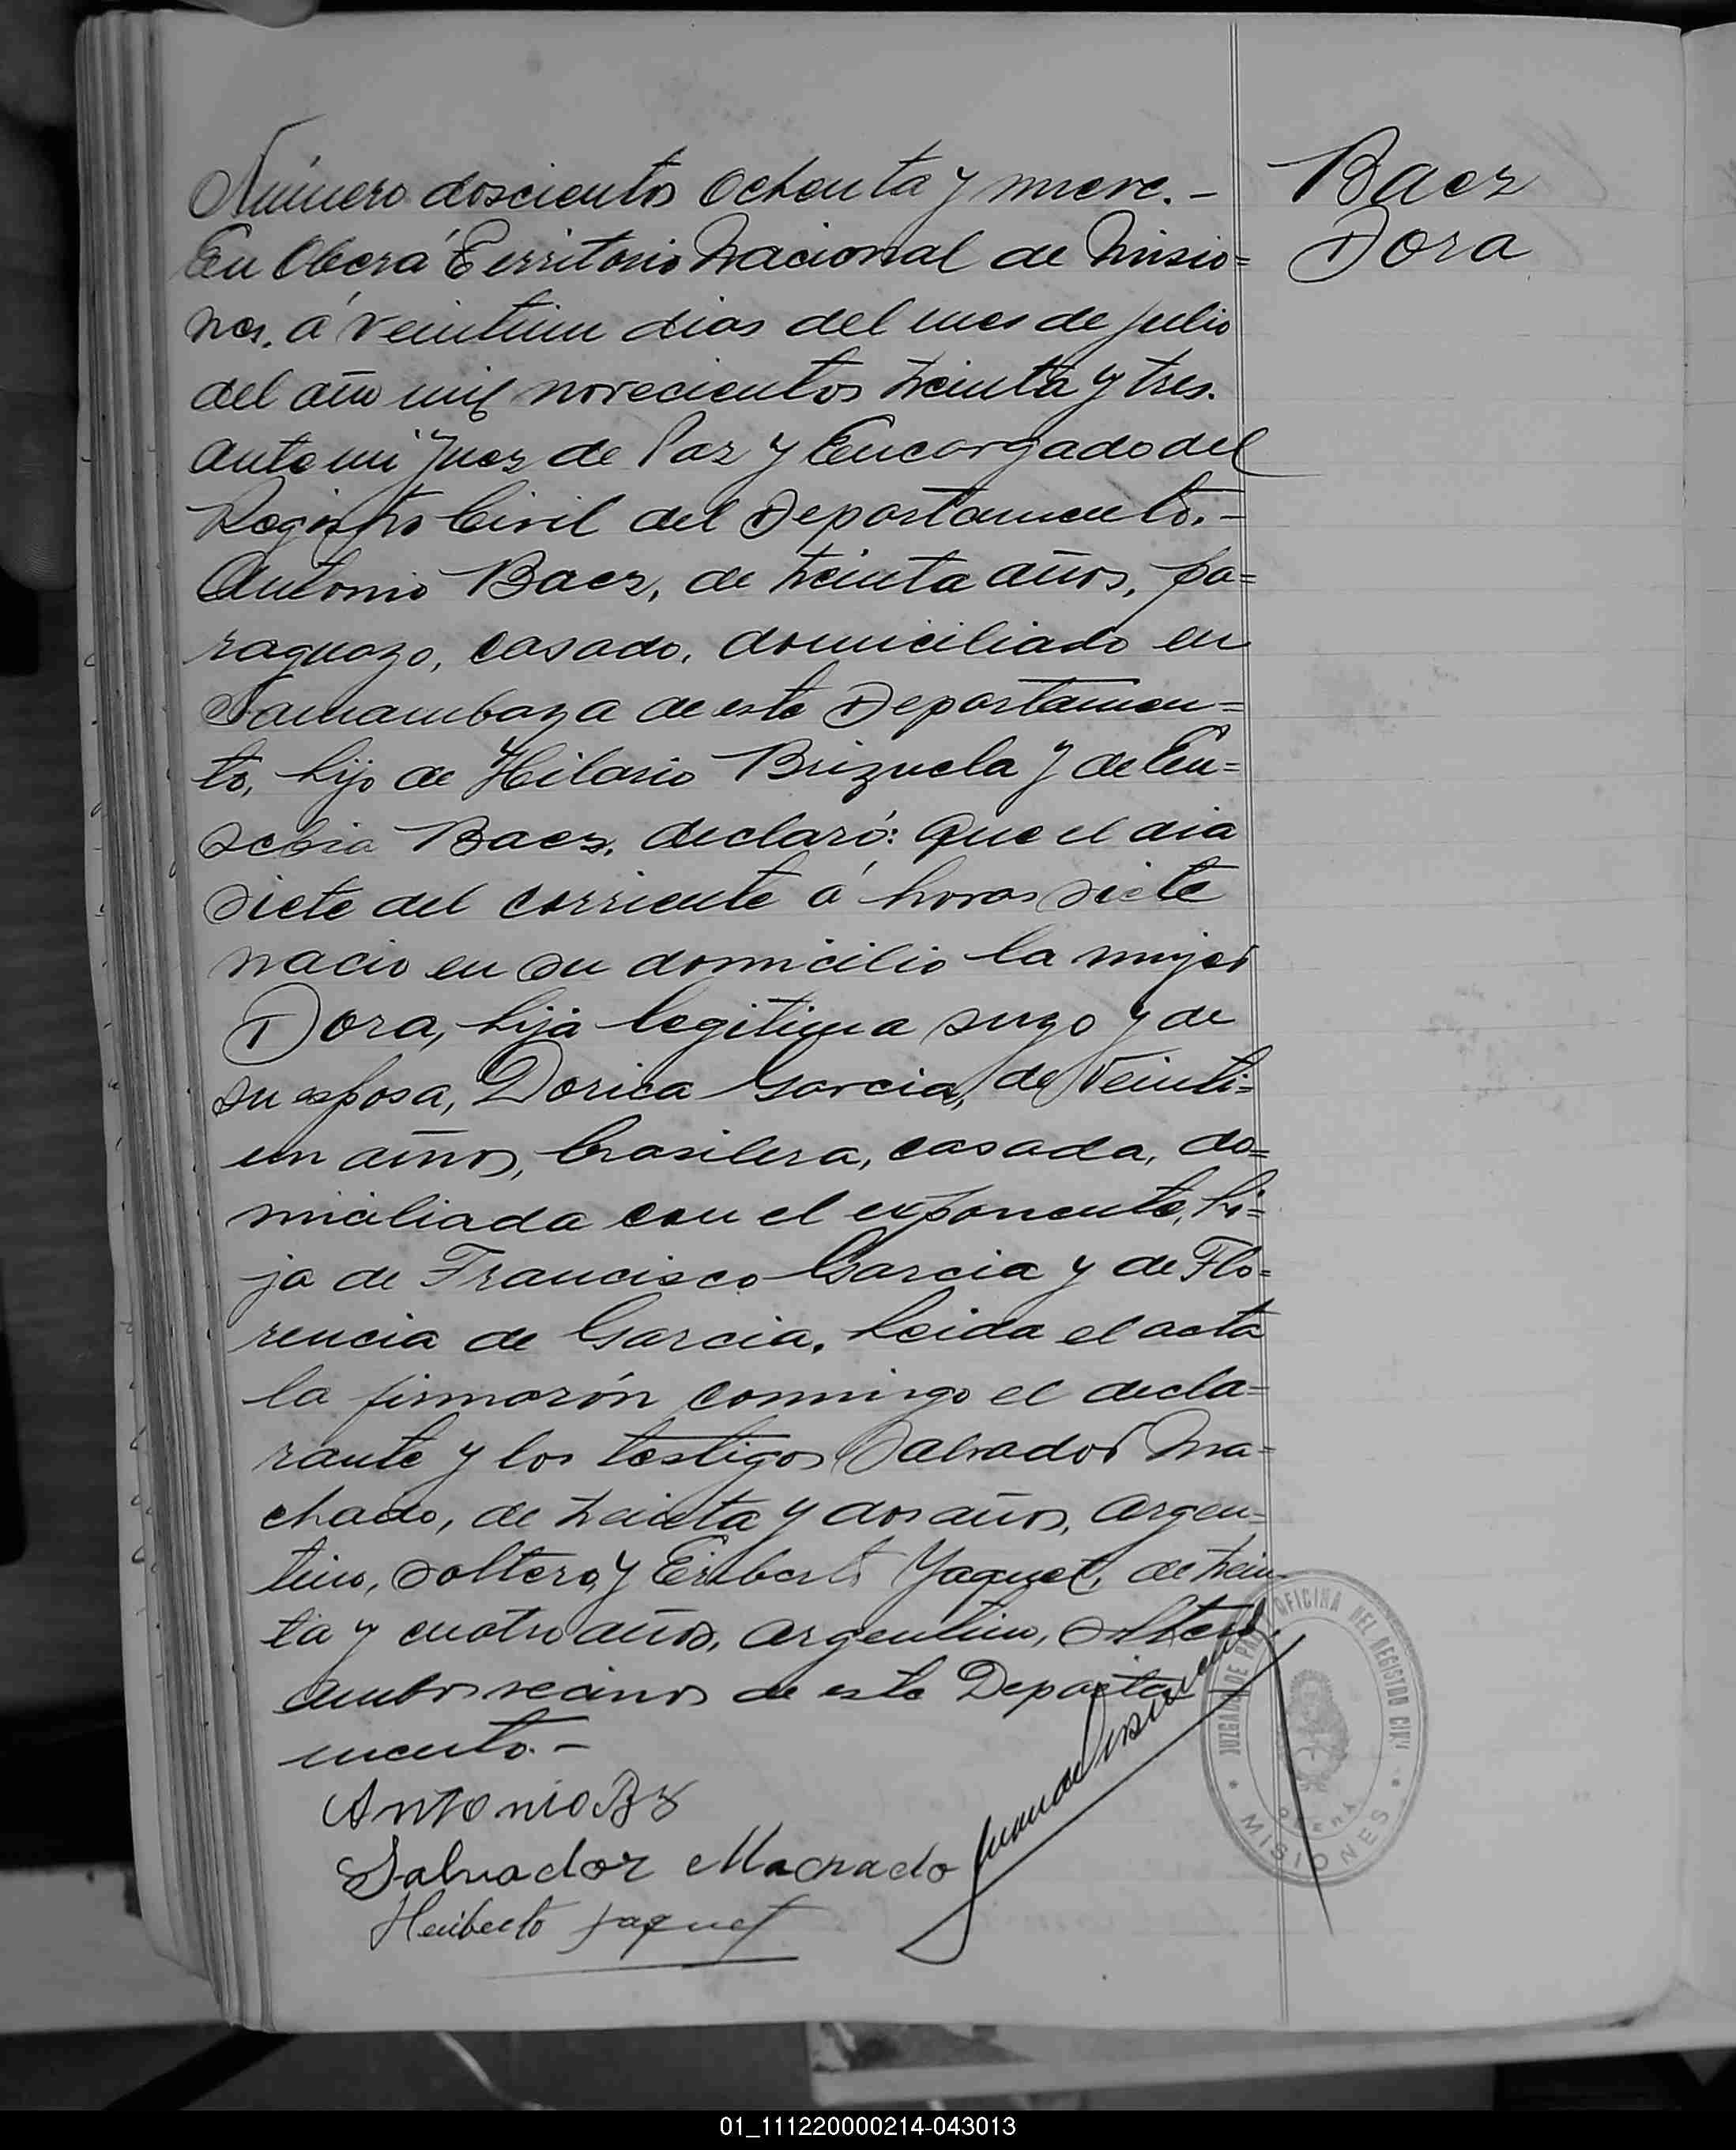 Número doscientos ochenta y nueve.-
En Oberá Territorio Nacional de Misio=
nes, á veintiun dias del mes de julio
del año mil novecientos treinta y tres.
ante mi Juez de Paz y Encargado del
Registro Civil del Departamento.-
Antonio Baez, de treinta años, pa=
raguayo, casado, domiciliado en
Samambaya de este Departamen=
to, hijo de Hilario Brizuela y de Eu=
sebia Baez, declaró: Que el dia
siete del corriente á horas siete
nacio en su domicilio la mujer
Dora, hija legitima suyo y de
su esposa, Dorica Garcia, de veinti=
un años, brasilera, casada, do=
miciliada con el exponente, hi=
ja de Francisco Garcia y de Flo=
rencia de Garcia. Leida el acta
la firmarón conmigo el decla=
rante y los testigos Salvador Ma=
chado, de treinta y dos años, argen=
tino, soltero, y Eriberto Yaquet, de trein
ta y cuatro años, argentino, soltero,
ambos vecinos de este Departa
mento.-
Antonio Bz
Salvador Machado
Heriberto Jaquet
Baez
Dora
JUZGADO DE PAZ OFICINA DEL REGISTRO CIVIL
OBERÁ
* MISIONES *
01_111220000214-043013